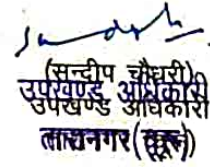 (सन्दीप चौधरी)
उपखण्ड अधिकारी
उपखण्ड अधिकारी
तारानगर (चूरू)